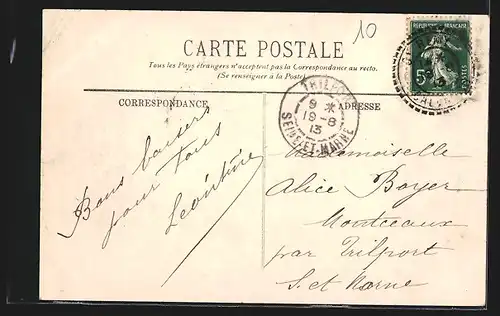 10
CARTE POSTALE
Tous les Pays étrangers n'acceptent pas la Correspondance au recto.
(Se renseigner à la Poste)
CORRESPONDANCE
ADRESSE
TRILPORT
9 *
19-8
13
SEINE-ET-MARNE
REPUBLIQUE FRANÇAISE
5
POSTES
Bons baisers
pour tous
Mademoiselle
Alice Boyer
Montceaux
par Trilport
S. et Marne